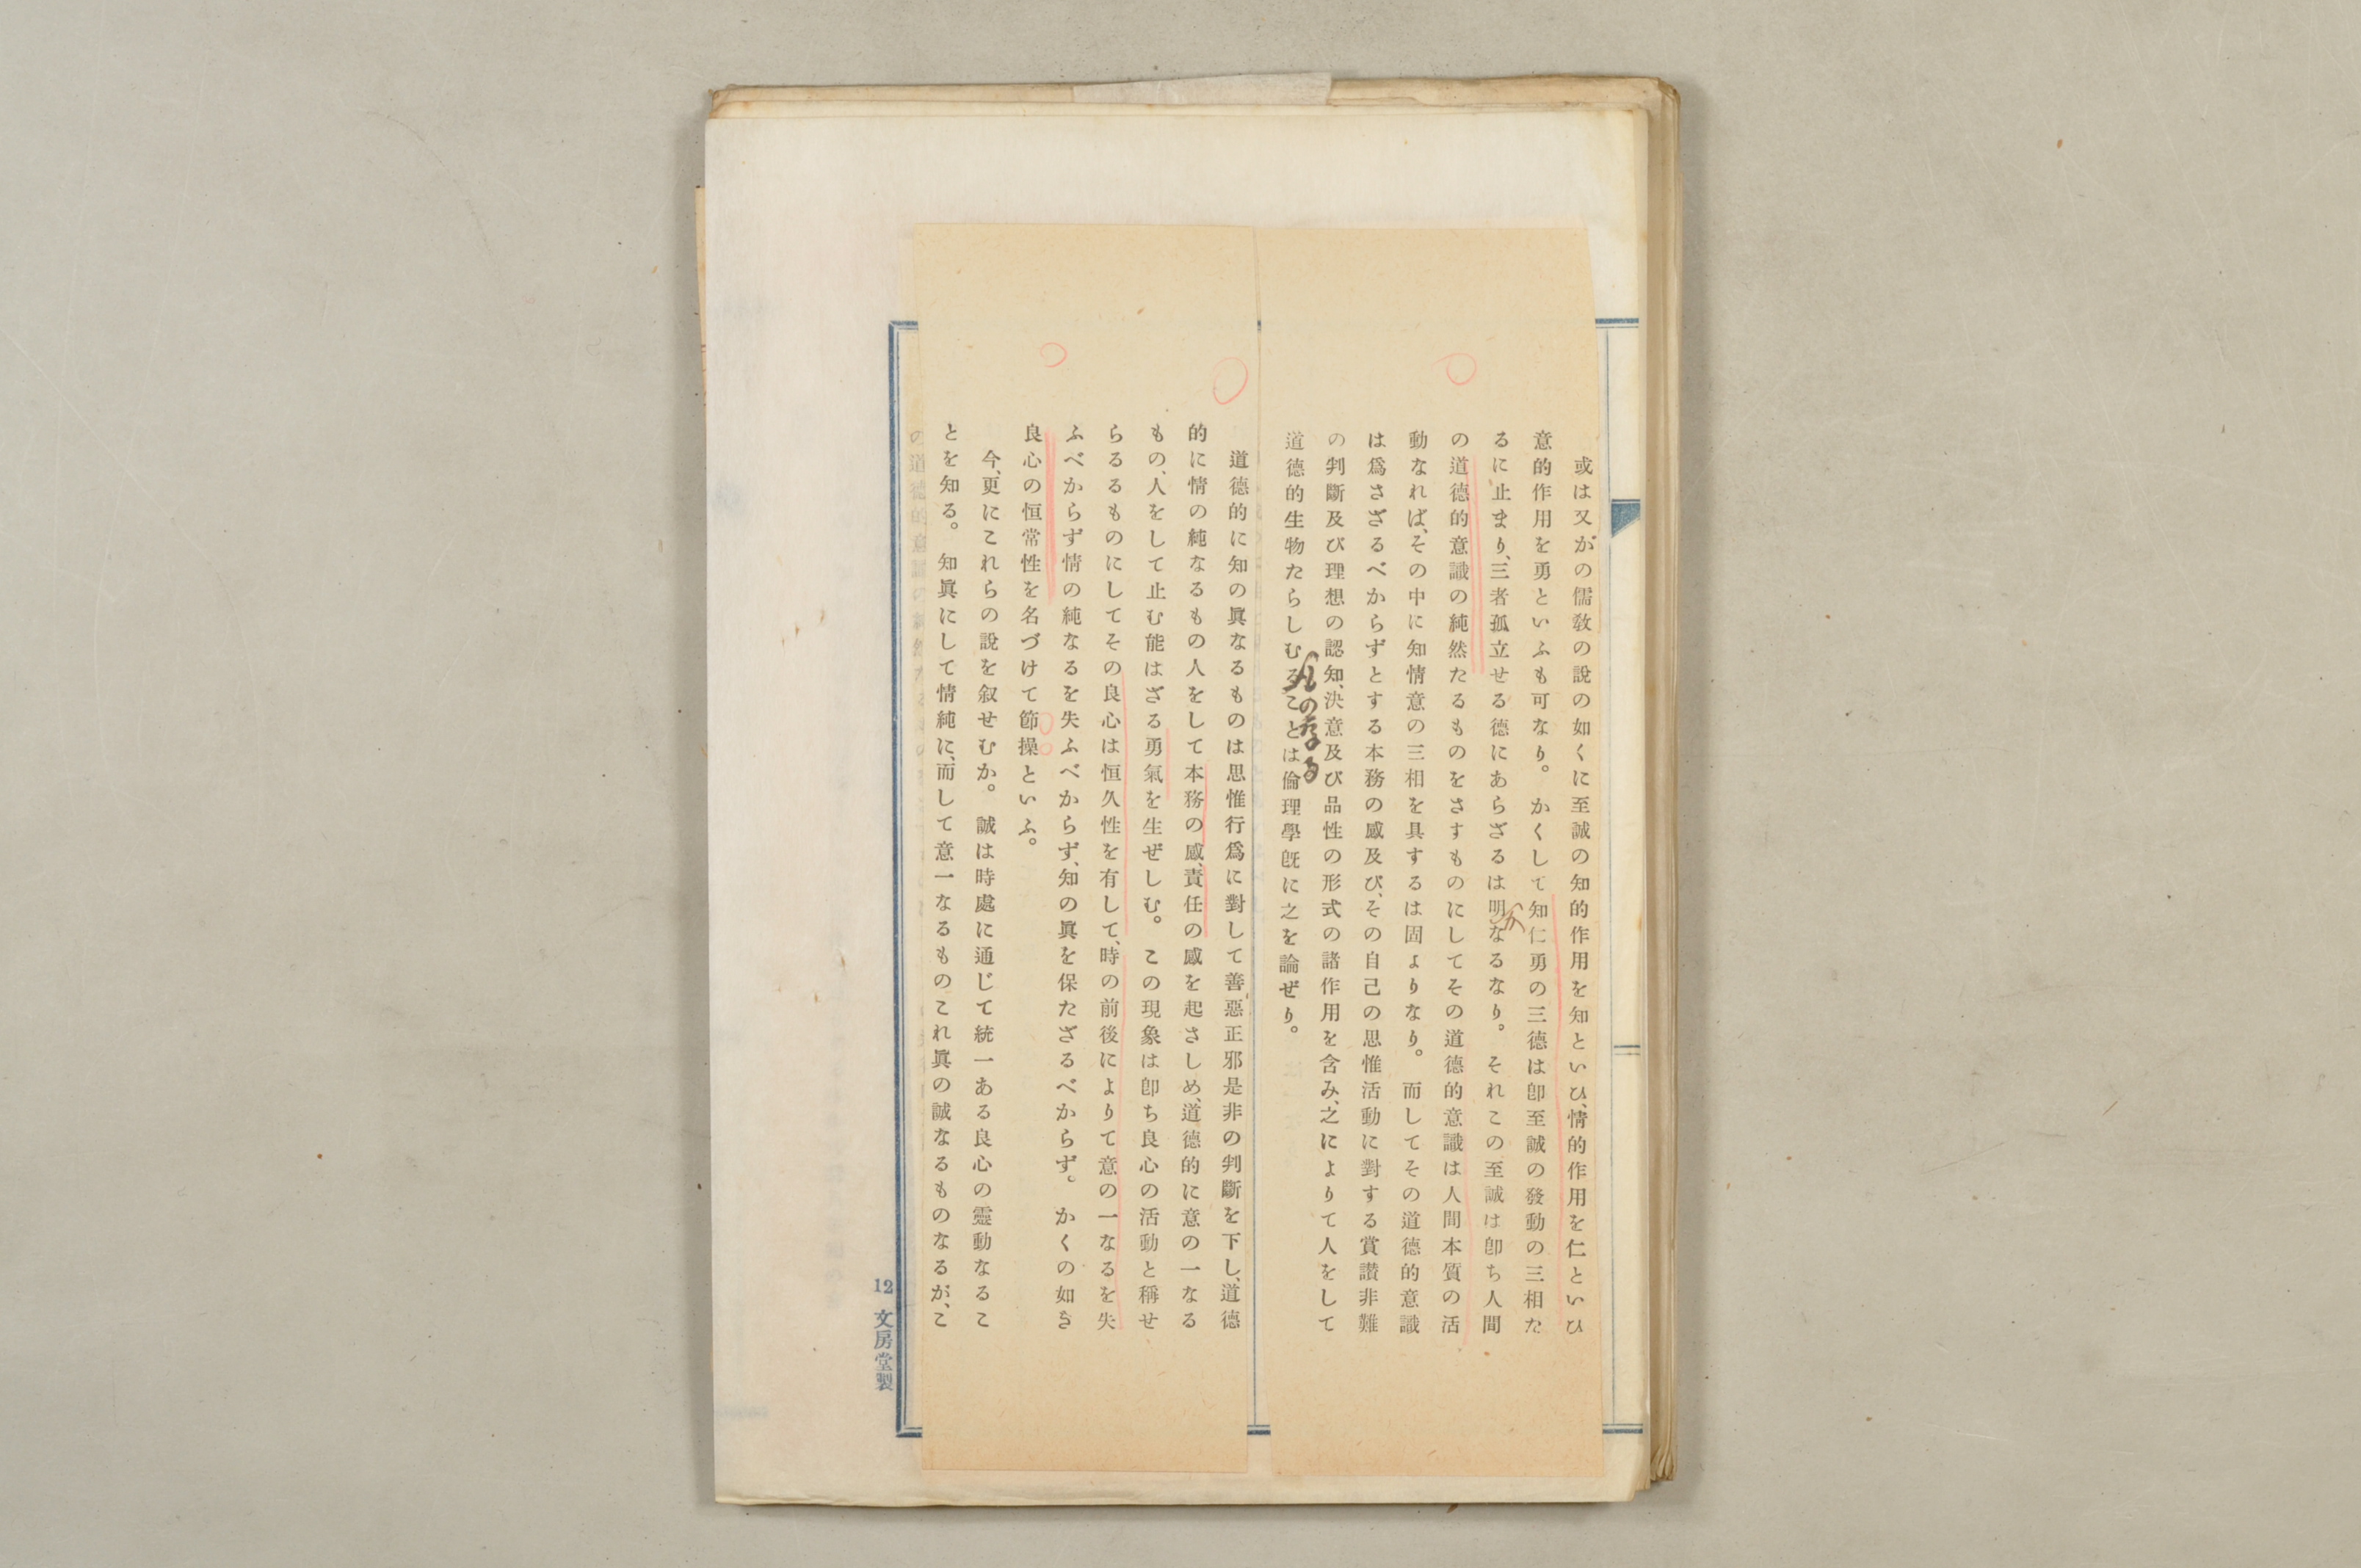 或は又かの儒敎の說の如くに至誠の知的作用を知といひ、情的作用を仁といひ
意的作用を勇といふも可なり。かくして知仁勇の三德は卽至誠の發動の三相た
るに止まり、三者孤立せる德にあらざるは明なるなり。それこの至誠は卽ち人間
か
の道德的意識の純然たるものをさすものにしてその道德的意識は人間本質の活
動なれば、その中に知情意の三相を具するは固よりなり。而してその道德的意識
は爲さざるべからずとする本務の感及び、その自己の思惟活動に對する賞讃非難
の判斷及び理想の認知、決意及び品性の形式の諸作用を含み、之によりて人をして
道德的生物たらしむることは倫理學旣に之を論ぜり。
道德的に知の眞なるものは思惟行爲に對して善惡正邪是非の判斷を下し、道德
的に情の純なるもの人をして本務の感、責任の感を起さしめ、道德的に意の一なる
もの、人をして止む能はざる勇氣を生ぜしむ。この現象は卽ち良心の活動と稱せ
らるるものにしてその良心は恒久性を有して、時の前後によりて意の一なるを失
ふべからず情の純なるを失ふべからず、知の眞を保たざるべからず。かくの如き
良心の恒常性を名づけて節操といふ。
今、更にこれらの說を叙せむか。誠は時處に通じて統一ある良心の靈動なるこ
とを知る。知眞にして情純に、而して意一なるものこれ眞の誠なるものなるが、こ
12 文房堂製